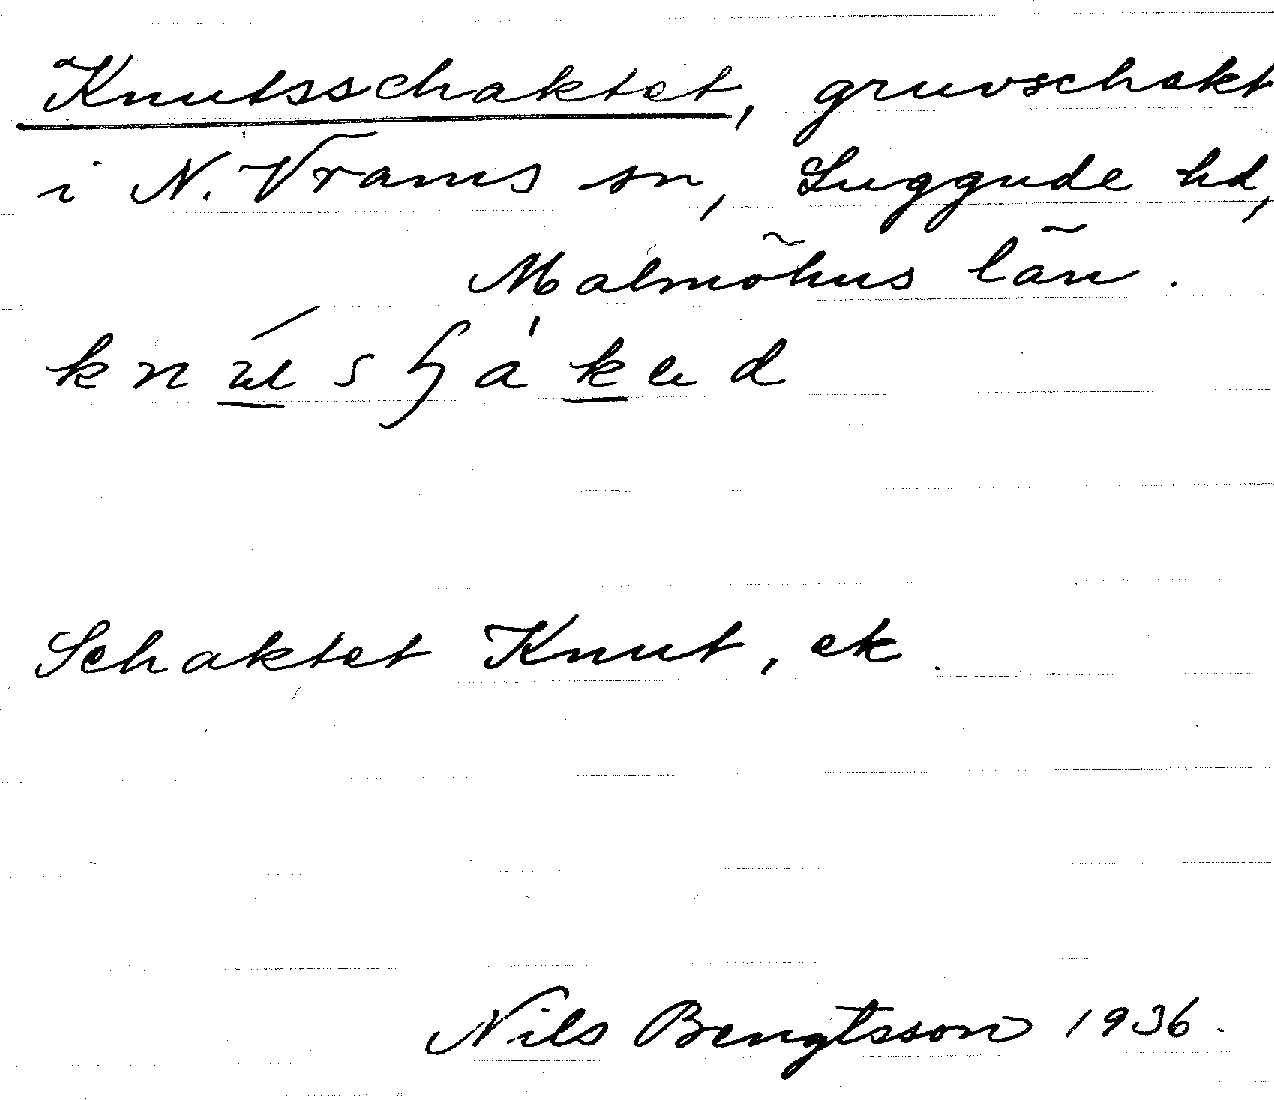 Knutsschaktet, gruvschakt
i N. Vrams sn, Luggude hd,
Malmöhus län.
Schaktet Knut, ek.
Nils Bengtsson 1936.